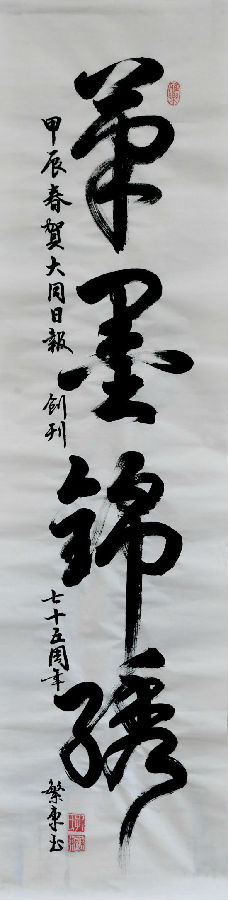 笔墨錦绣
甲辰春賀大同日報創刊七十五周年
繁東书